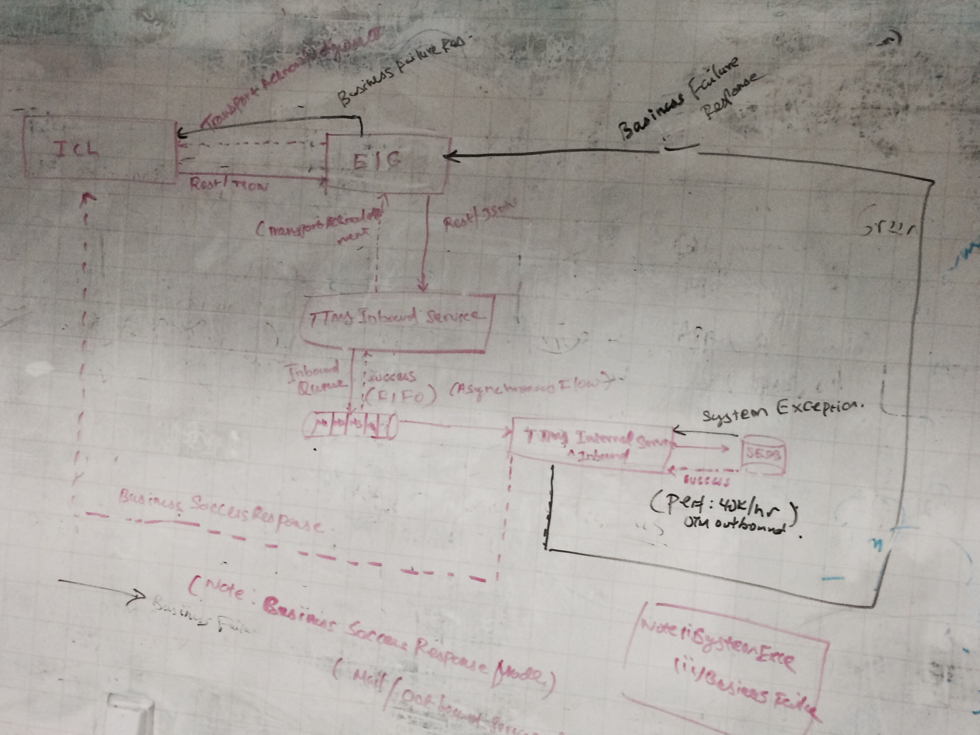 Transport Acknowledgement
Business failure Res.
Business Failure
Response
ICL
EIG
Rest/JSON
(Transport Acknowledge
ment
Rest/JSON
Error
TTMS Inbound Service
Inbound
Queue
success
(FIFO) (Asynchronous Flow).
System Exception.
TTMS Internal Service
^ Inbound
success
(Perf: 40K/hr)
outbound.
Business Success Response.
Business Failu
(Note: Business Success Response Mode)
(Mail/Outbound
Note: (i) System Exce
(ii) Business Failure